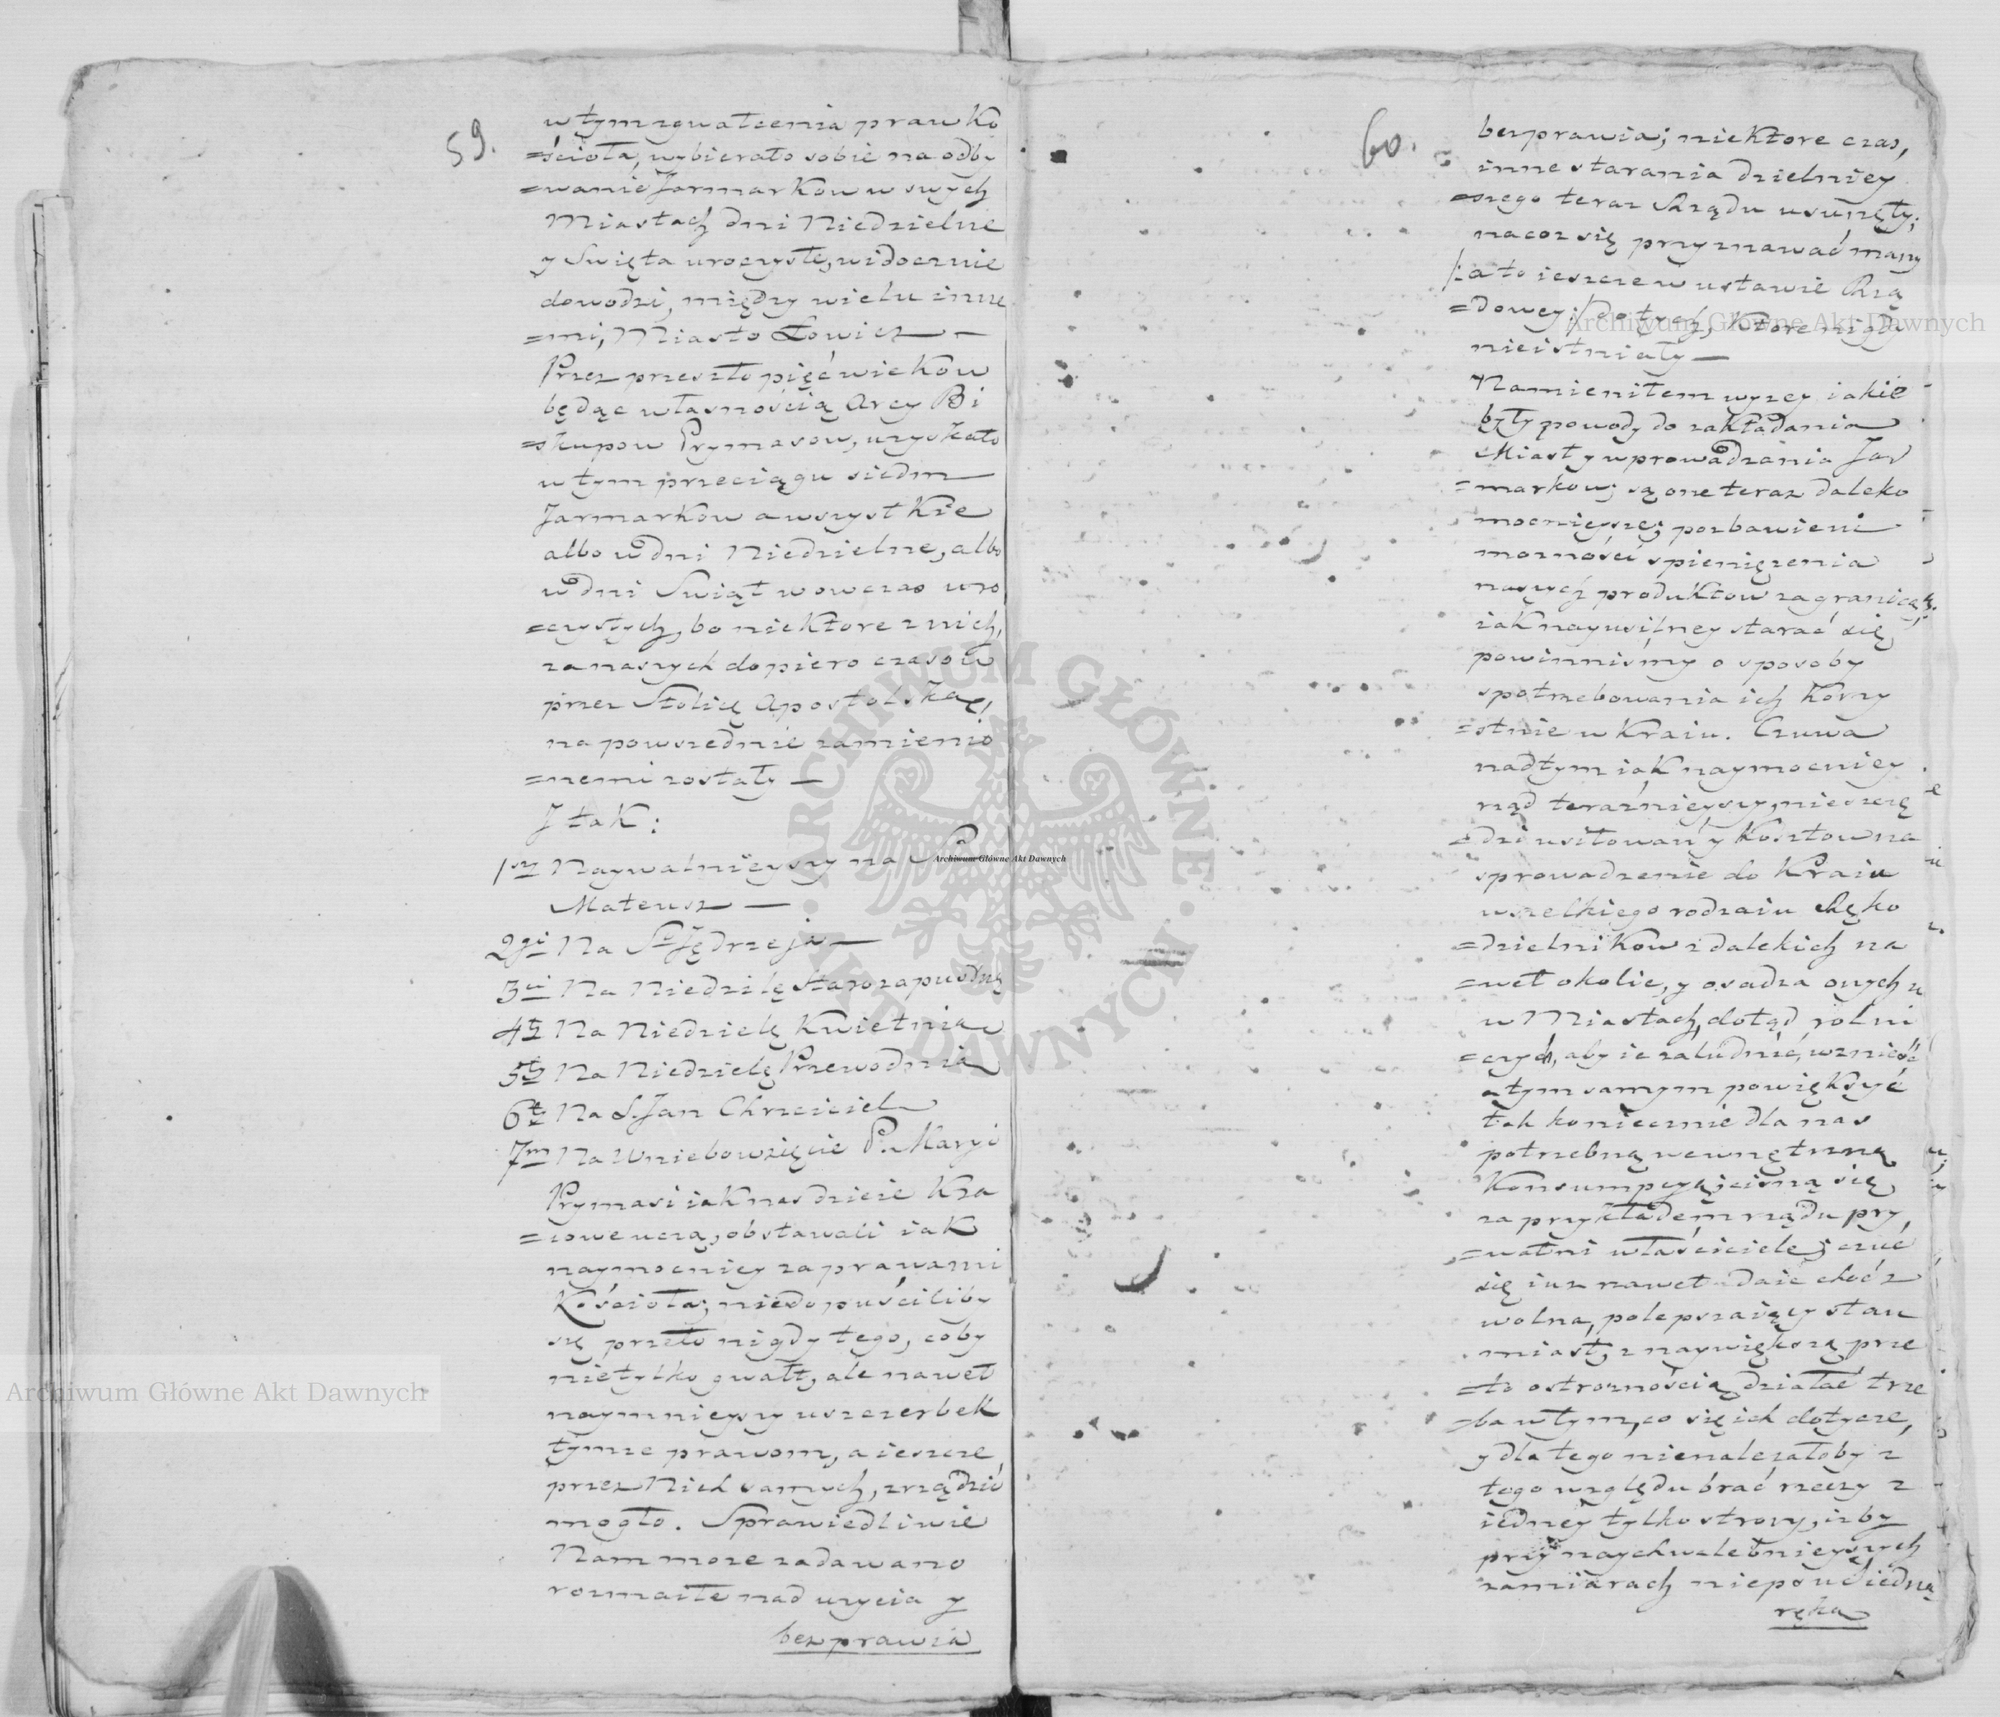 59.
w tym zgwałcenia praw Ko
=ścioła, wybierało sobie na odby
=wanie Jarmarkow w swych
Miastach dni Niedzielne
y Swięta uroczyste, widocznie
dowodzi, między wielu inne
=mi, Miasto Łowicz —
Przez przeszło pięć wiekow
będąc własnością Arcy Bi
=skupow Prymasow, uzyskało
w tym przeciągu siedm
Jarmarkow a wszystkie
albo w dni Niedzielne, albo
w dni Swiąt wowczas uro
=czystych, bo niektore z nich,
za naszych dopiero czasow
przez Stolicę Apostolską,
na powszednie zamienio
=nemi zostały —
J tak:
1szy Naywalnieyszy na Sn
Mateusz —
2gi Na St Jędrzeja —
3ci Na Niedzilę Starozapustną
4ty Na Niedzielę Kwietnią
5ty Na Niedzielę Przewodnią
6ty Na S. Jan Chrzciciel
7my Na Wniebowzięcie P. Maryi
Prymasi iak nas dzieie Kra
=iowe uczą, obstawali iak
naymocniey za prawami
Kościoła; niedopuściliby
się przeto nigdy tego, coby
nietylko gwałt, ale nawet
naymnieyszy uszczerbek
tymże prawom, a ieszcze
przez Nich samych, zrządzić
mogło. Sprawiedliwie
Nam może zadawano
rozmaite nad użycia y
bezprawia
60.
bezprawia; niektore czas,
inne starania dzielniey
=szego teraz Rządu usunęły;
nacoż się przyznawać mamy
/: a to ieszcze w ustawie Rzą
=dowey :/ do tych, ktore nigdy
nieistniały —
Namieniłem wyżey iakie
były powody do zakładania
Miast y wprowadzania Jar
=markow; są one teraz daleko
mocnieysze; pozbawieni
możności spieniężenia
naszych produktow zagranicą,
iak nayusilney starać się
powinnismy o sposoby
spotrzebowania ich korzy
=stnie w Kraiu. Czuwa
nad tym iak naymocniey
rząd teraznieyszy, nieszczę
=dzi usiłowań y kosztow na
sprowadzenie do Kraiu
wszelkiego rodzaiu Ręko
=dzielnikow z dalekich na
=wet okolic, y osadza onych
w Miastach, dotąd rolni
=czych, aby ie zaludnić, wznieść
a tym samym powiększyć
tak koniecznie dla nas
potrzebną wewnętrzną
Konsumpcyą; cisną się
za przykładem rządu pry
=watni właściciele; czuć
się iuż nawet daie choć z
wolna, polepszaiący stan
miast, z naywiększą prze
=to ostrożnością działać trze
=ba w tym, co się ich dotycze,
y dla tego nienależałoby z
tego względu brać rzeczy z
iedney tylko strony, iżby
przy naychwalebnieyszych
zamiarach niepsuć iedną
ręką
Archiwum Główne Akt Dawnych
Archiwum Główne Akt Dawnych
Archiwum Główne Akt Dawnych
ARCHIWUM GŁÓWNE AKT DAWNYCH